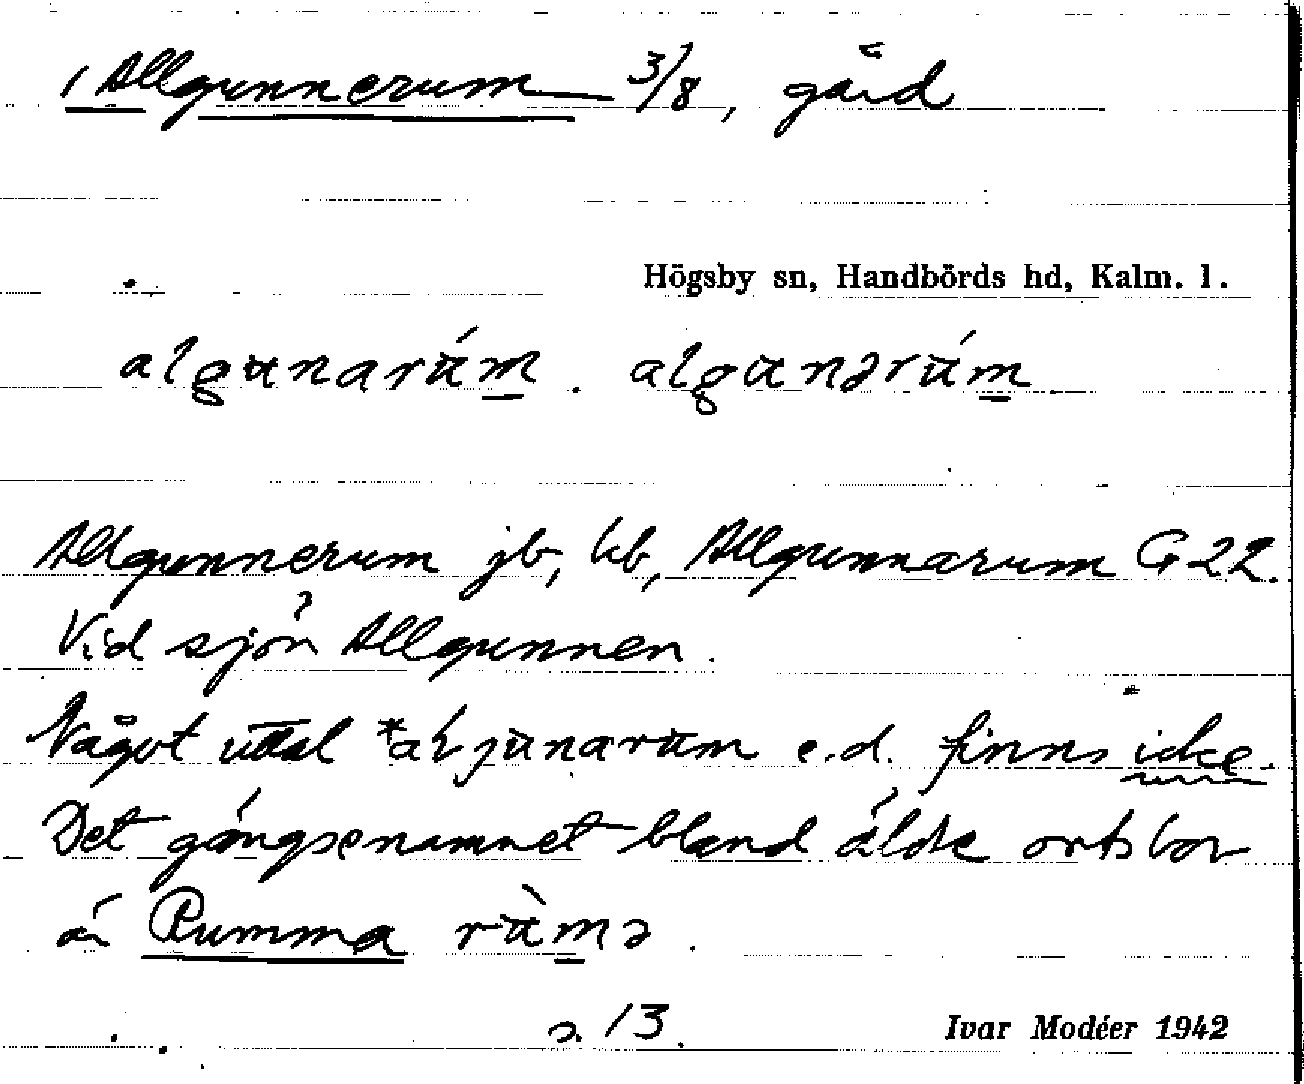 1 Allgunnerum 3/8, gård
Högsby sn, Handbörds hd, Kalm. l.
algunarúm. algunərúm
Allgunnerum jb, kb, Allgunnarum G 22.
Vid sjön Allgunnen.
Något uttal *aljunarum e.d. finns icke.
Det gängse namnet bland äldre ortsbor
är Rumma rùmə.
s. 13.
Ivar Modéer 1942